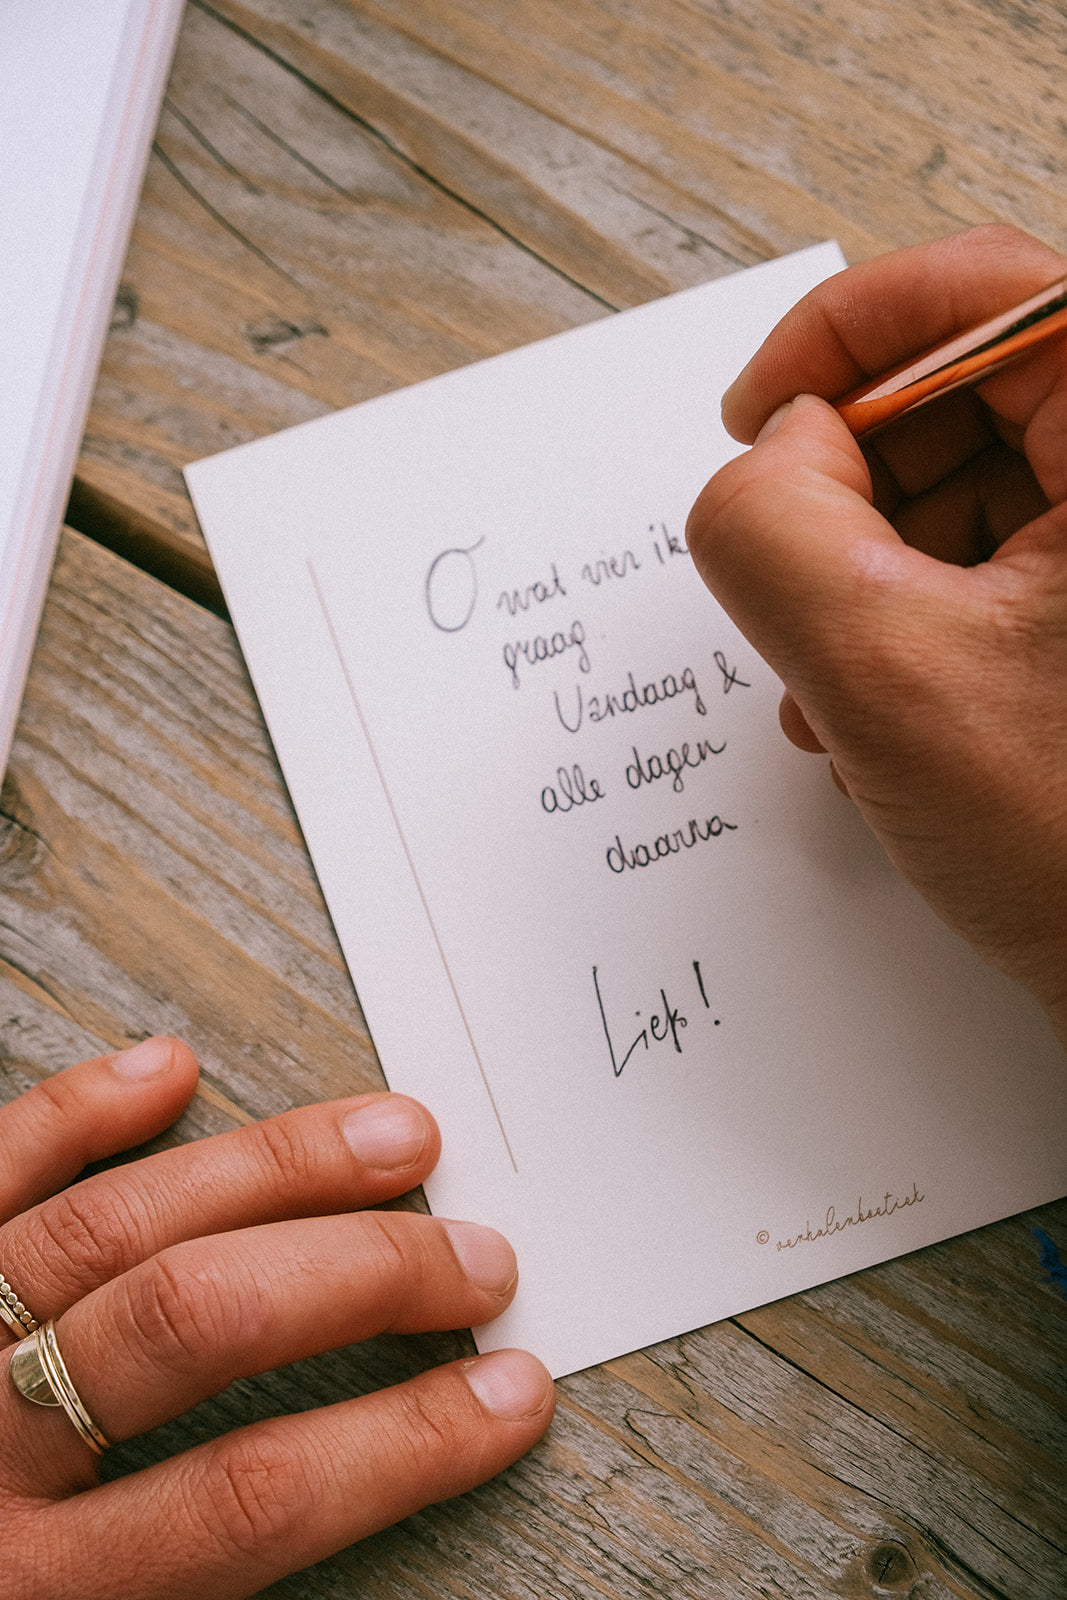 O wat vier ik
graag.
Vandaag &
alle dagen
daarna
Liefs!
© verhalenboetiek